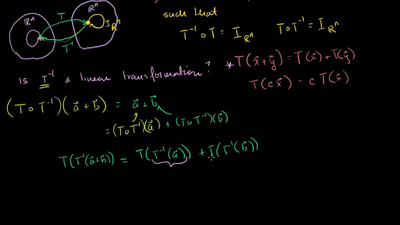 such that
ℝⁿ T ℝⁿ
T⁻¹ I_ℝⁿ
T⁻¹∘T = I_ℝⁿ T∘T⁻¹ = I_ℝⁿ
Is T⁻¹ a linear transformation? * T(x⃗+y⃗) = T(x⃗) + T(y⃗)
T(cx⃗) = cT(x⃗)
(T∘T⁻¹)(a⃗+b⃗) = a⃗+b⃗
= (T∘T⁻¹)(a⃗) + (T∘T⁻¹)(b⃗)
T(T⁻¹(a⃗+b⃗)) = T(T⁻¹(a⃗)) + T(T⁻¹(b⃗))